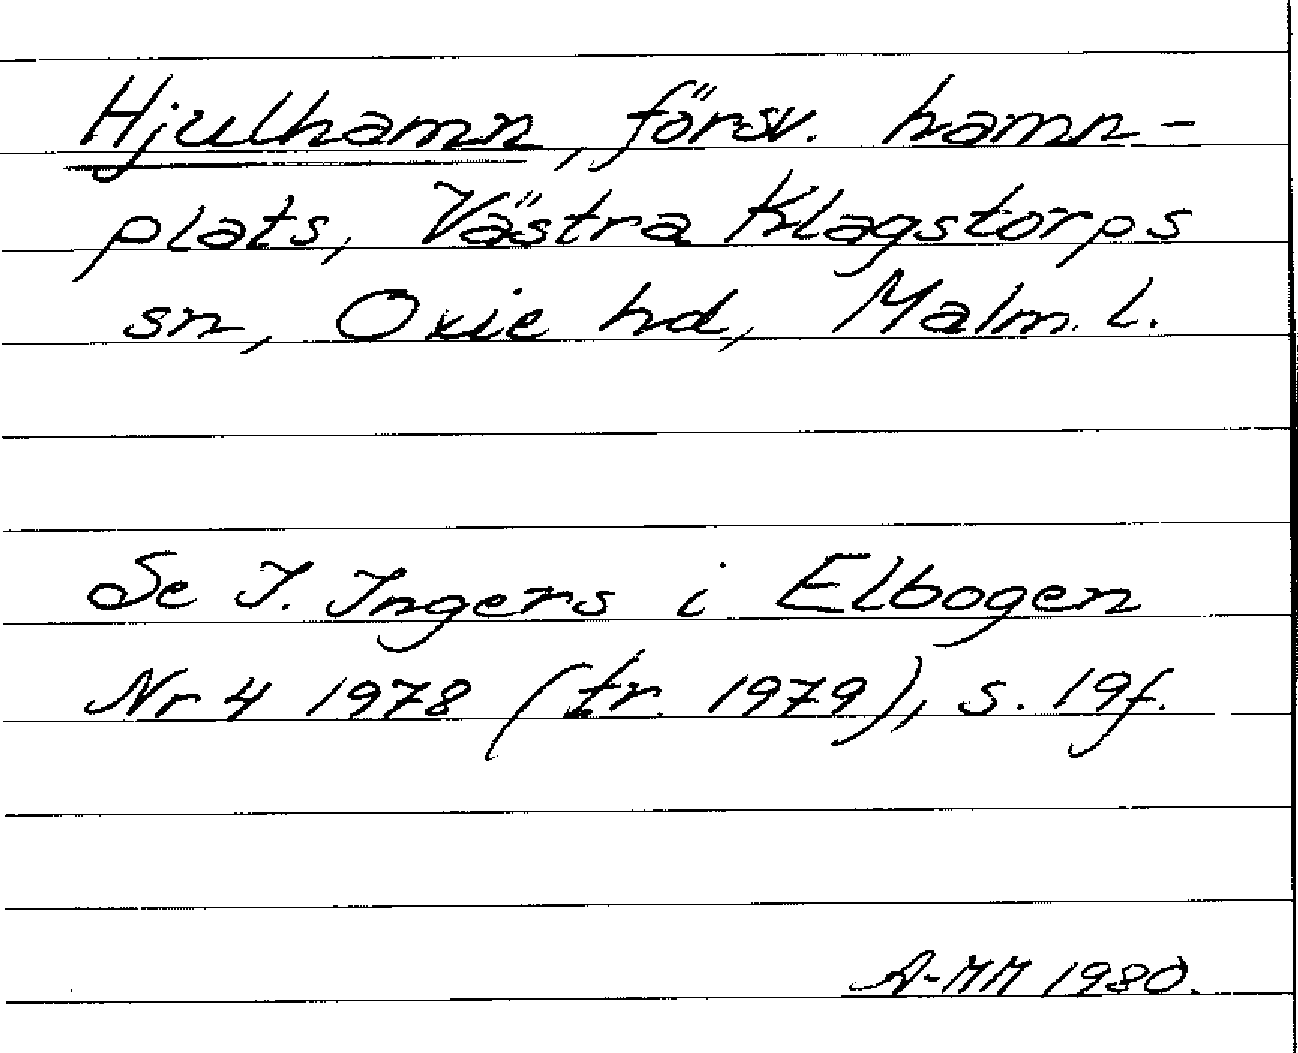 Hjulhamn, försv. hamn-
plats, Västra Klagstorps
sn, Oxie hd, Malm. l.
Se I. Ingers i Elbogen
Nr 4 1978 (tr. 1979), s. 19f.
A-MM 1980.